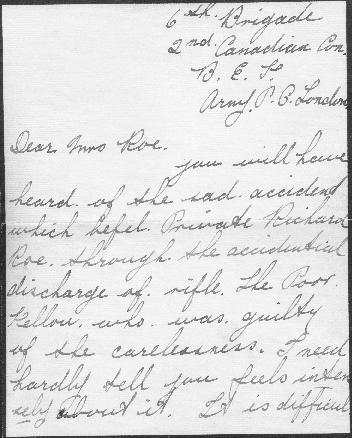 6th. Brigade
2nd. Canadian Con.
B. E. F.
Army. P. O. London
Dear. Mrs Roe.
you will have
heard. of the sad. accident
which befel. Private Richard
Roe. through. the accidential
discharge of. rifle. The Poor.
Fellow. who. was. guilty
of the carelessness. I need
hardly tell you feels inten
sely about it. It is difficul